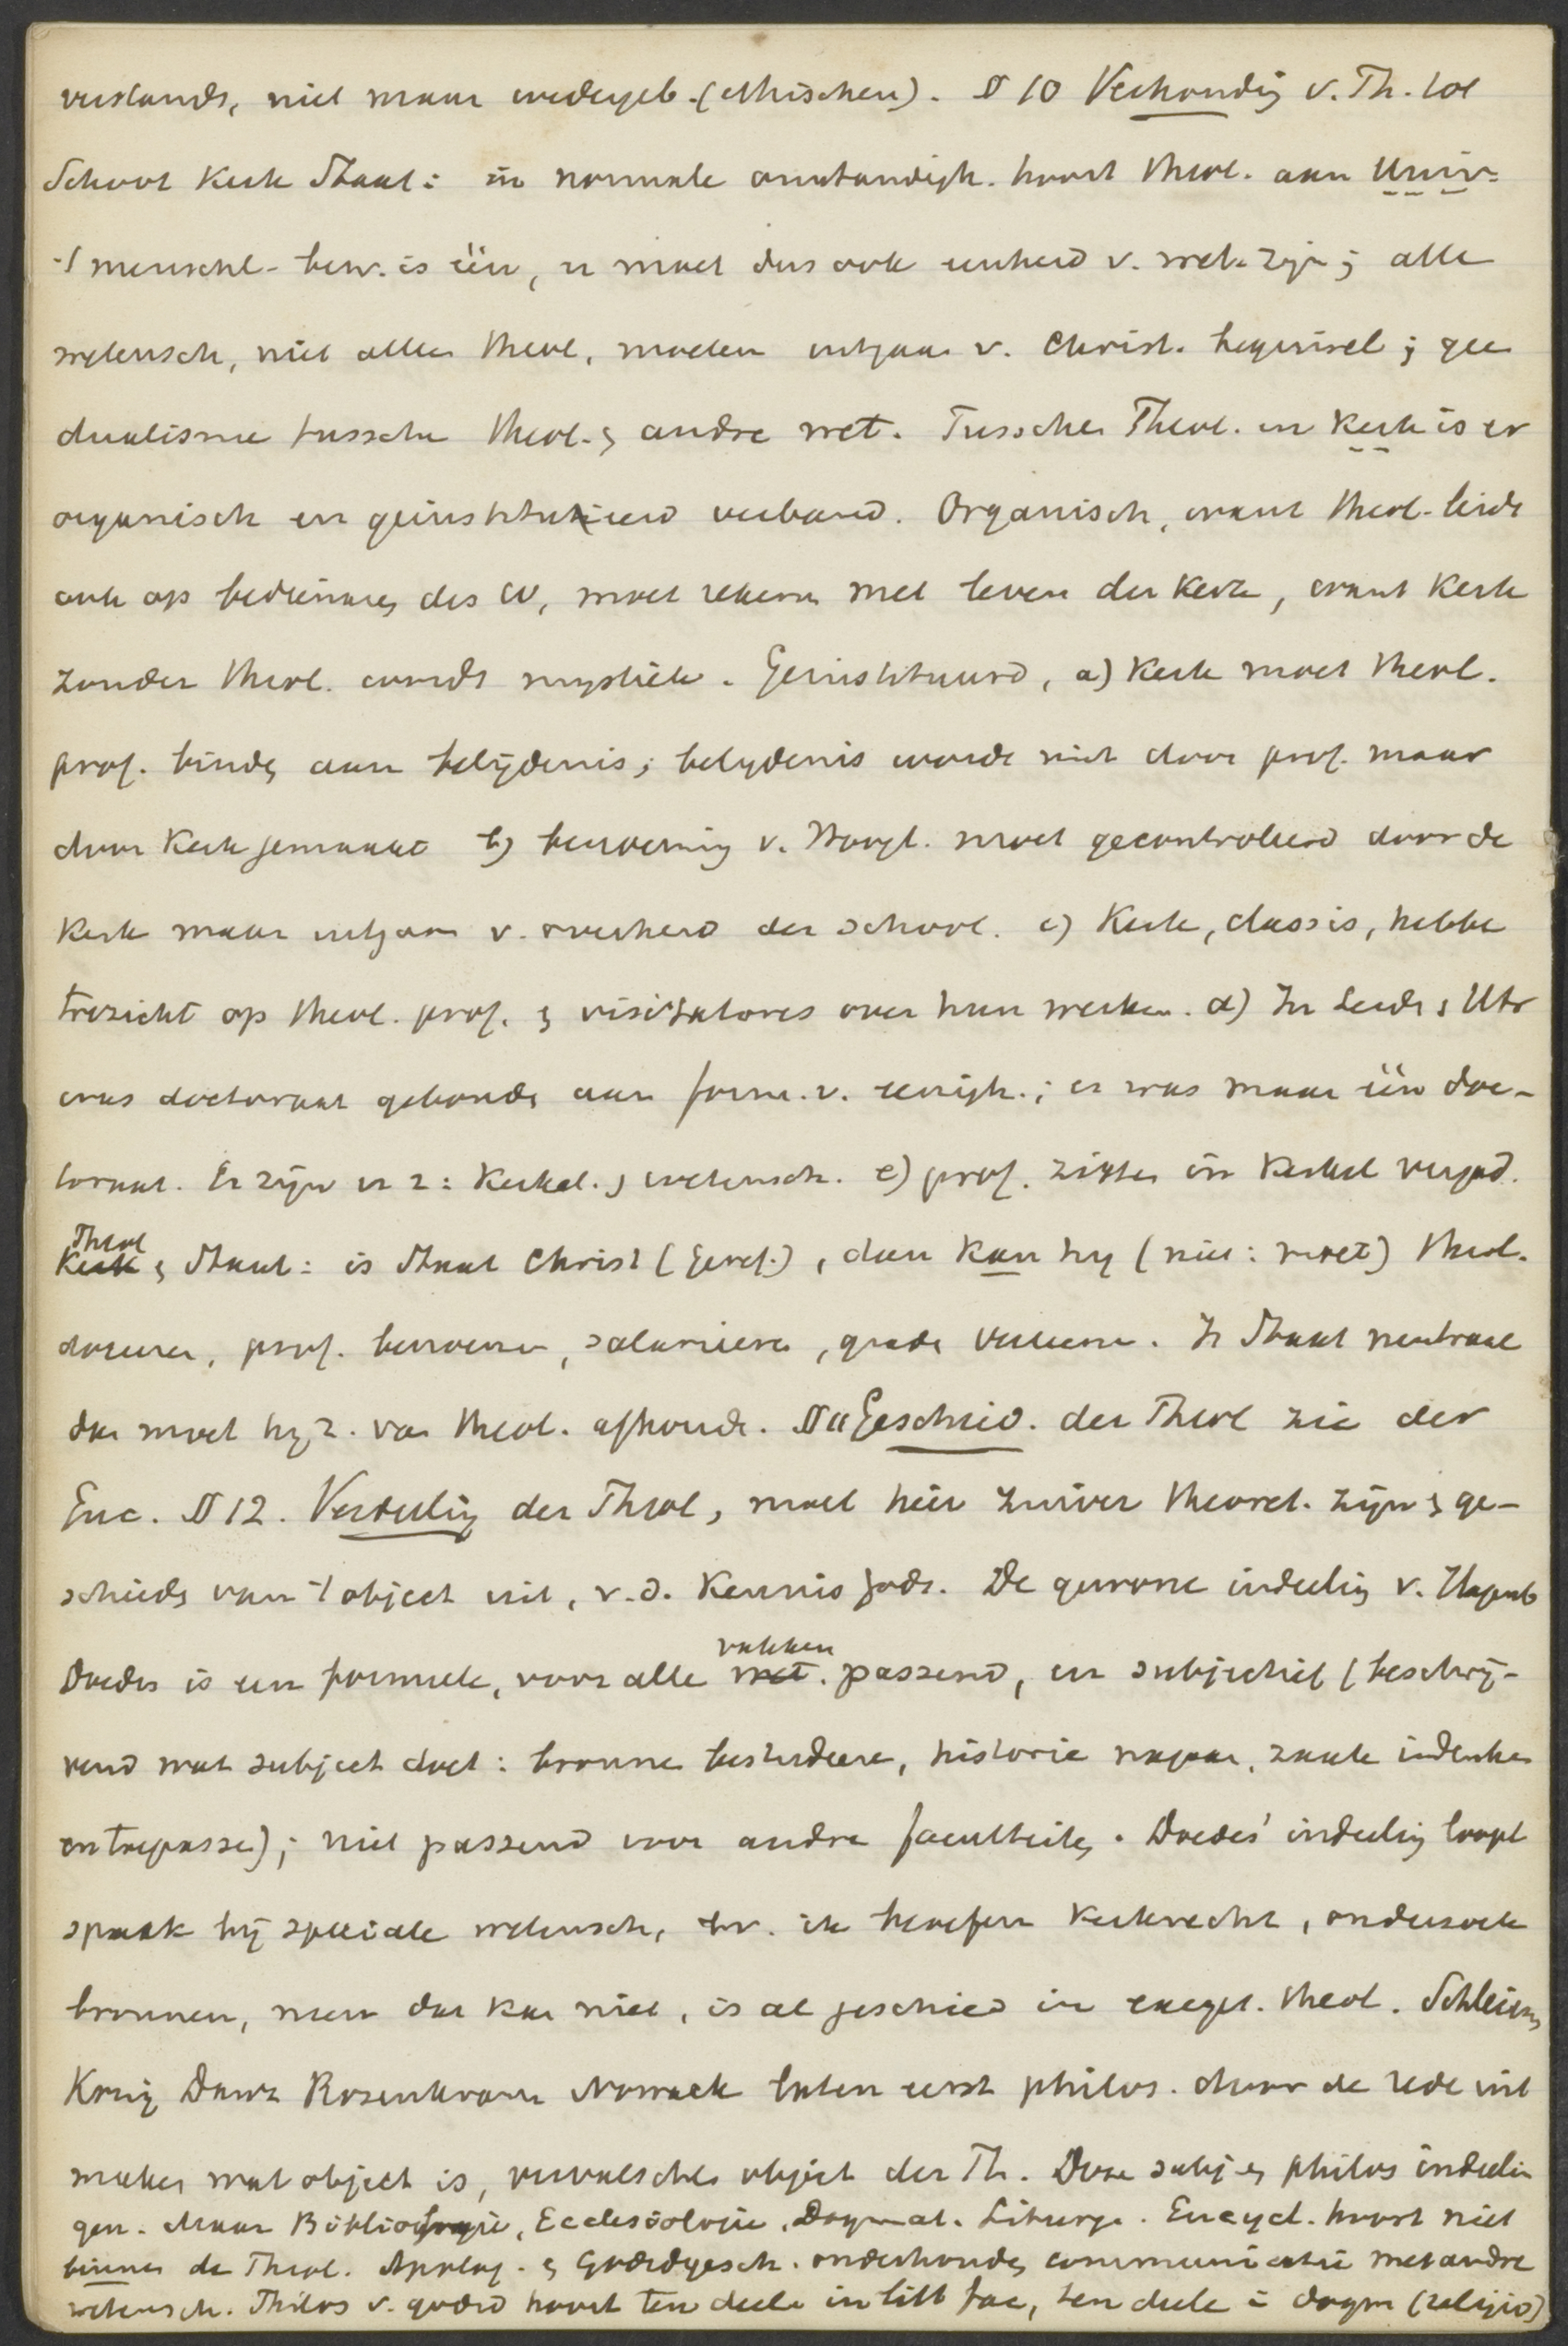 verstands, niet maar wedergeb. (ethischen). § 10 Verhoudig v. Th. tot
School Kerk Staat: in normale omstandigh. hoort theol. aan Univ.
't menschel. bew. is één, er moet dus ook eenheid v. wet. zijn; alle
wetensch, niet alleen theol, moeten uitgaan v. Christ. beginsel; gee
dualisme tussche theol. & andre wet. Tussche Theol. en Kerk is er
organisch en geinstitueerd verband. Organisch, want theol. leidt
ook op bedienaren des W, moet rekenen met leven der Kerk, want Kerk
zonder theol. wordt mystiek. Geinstitueerd, a) Kerk moet theol.
prof. binde aan belijdenis; belydenis worde niet door prof. maar
door Kerk gemaakt b) benoeming v. Hoogl. moet gecontroleerd door de
Kerk maar uitgaan v. overheid der school. c) Kerk, classis, hebbe
toezicht op theol. prof. & visitatores over hun werken. d) In Leide & Utr
was doctoraat gebonde aan form. v. eenigh.; er was maar één doc-
toraat. Er zijn er 2: Kerkel. & wetensch. e) prof. zitte in Kerkel vergad.
Theol & Staat: is Staat Christ (Geref.), dan kan hy (niet: moet) theol.
doceren, prof. benoemen, salarieren, grade verleenen. Is Staat neutraal
dan moet hy z. van theol. afhoude. § 11 Geschied. der Theol zie der
Enc. § 12. Verdeelig der Theol, moet hier zuiver theoret. zijn & ge-
schiede van 't object uit, v.d. Kennis Gods. De gewone indeelig v. Hagenb
Doedes is een formeele, voor alle vakken passend, en subjectief (beschrij-
vend wat subject doet: bronne bestudeere, historie nagaan, zaak indenken
en toepasse); niet passend voor andre faculteite. Doedes' indeelig loopt
spaak bij speciale wetensch, bv. ik beoefen Kerkrecht, onderzoek
bronnen, neen dat kan niet, is al geschied in exeget. theol. Schleierm
König Danz Rosenkranz Nowack laten eerst philos. door de rede uit
maken wat object is, vervalschte object der Th. Deze subj. en philos indeelin
gen. Maar Bibliologie, Ecclesiologie, Dogmat. Liturge. Encycl. hoort niet
binnen de Theol. Apolog. & Godsdgesch. onderhoude communicatie met andre
wetensch. Philos v. godsd hoort ten deele in litt fac, ten deele i dogm (religio)